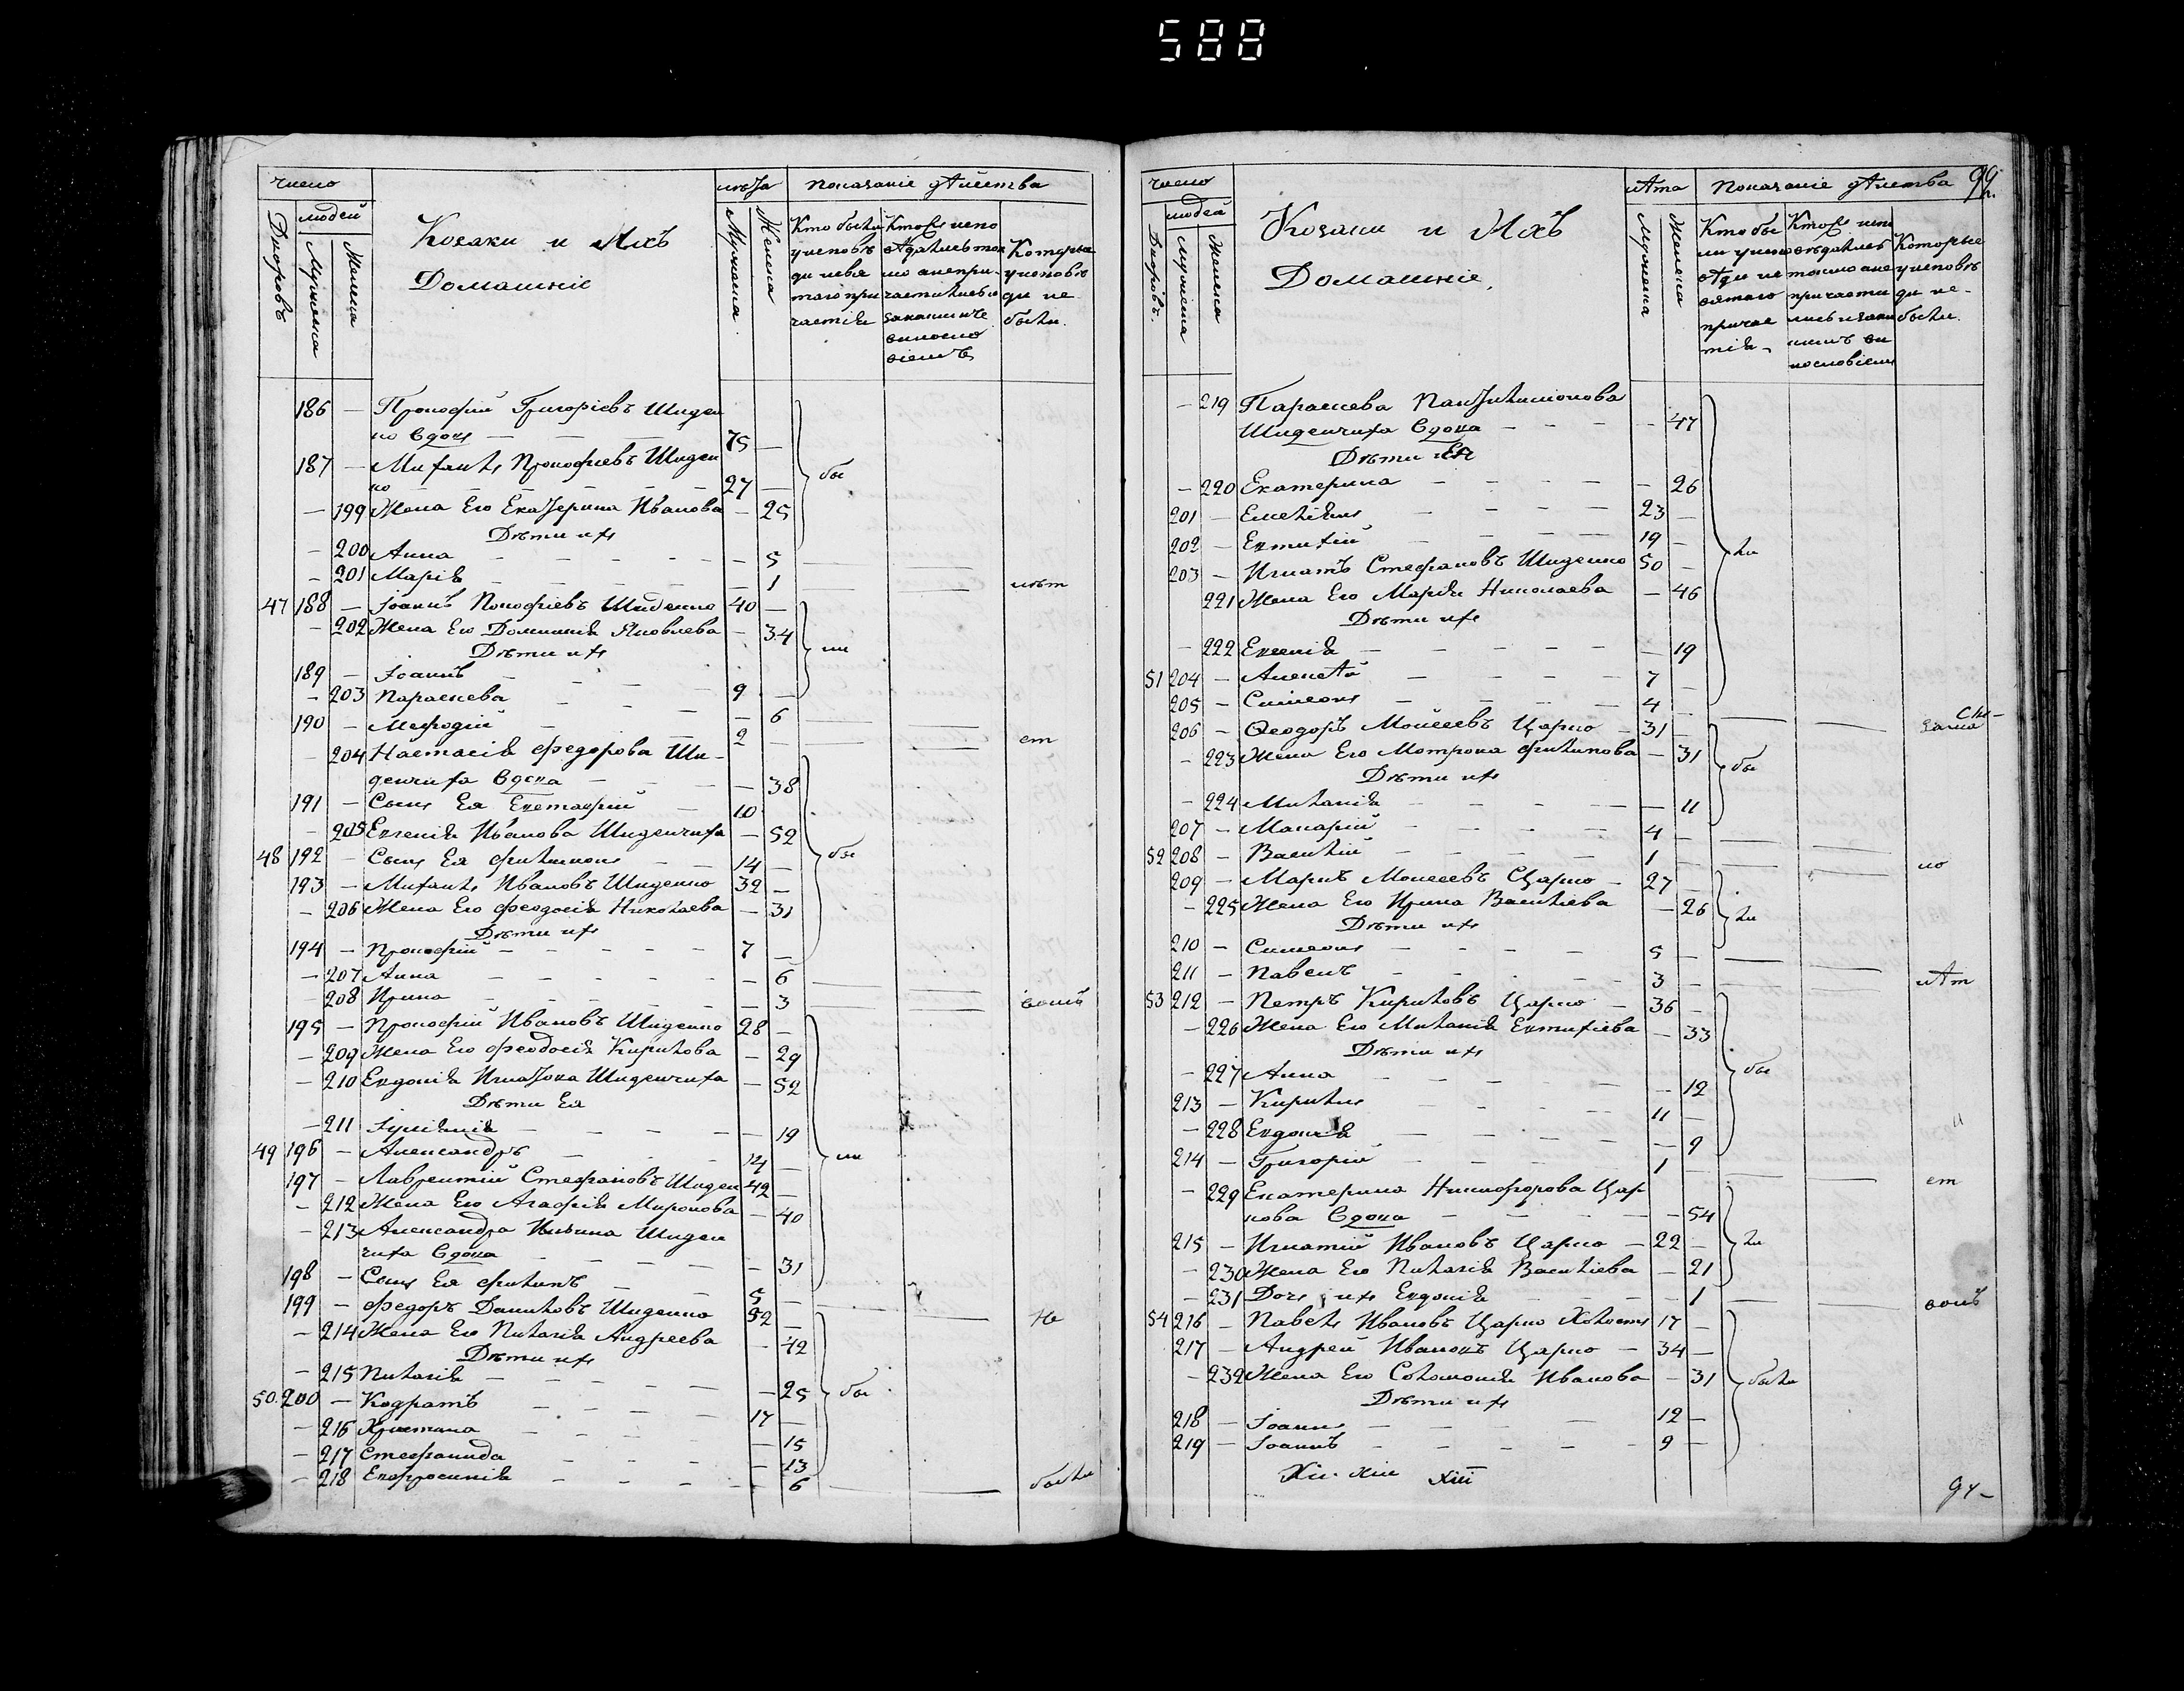 588
число
лѣта
показаніе дѣйства
Дворовъ
людей
Мужеска
Женска
Козаки и Ихъ
Домашніе
Мужеска
Женска
Кто были
у исповѣ
ди и свя
таго при
частія
Которые
у исповѣ
ди не
были.
186 — Прокофій Григоріевъ Шиден
ко вдовъ — 75 —
187 — Михаилъ Прокофіевъ Шиден
ко — 27 — бы
— 199 Жена Его Екатерина Иванова — 25
Дѣти ихъ
— 200 Анна — 5
— 201 Марія — 1
47 188 — Іоаннъ Прокофіевъ Шиденко 40 —
— 202 Жена Его Домникія Яковлева — 34
Дѣти ихъ
189 — Іоаннъ 9 —
— 203 Параскева — 6
190 — Мефодій 2
— 204 Настасія Федорова Ши-
денчиха Вдова — 38
191 — Сынъ Ея Евстафій 10
— 205 Евгенія Иванова Шиденчиха — 52
48 192 — Сынъ Ея Филимонъ 14 — бы
193 — Михаилъ Ивановъ Шиденко 32 —
— 206 Жена Его Феодосія Николаева — 31
Дѣти ихъ
194 — Прокофій 7 —
— 207 Анна — 6
— 208 Ирина — 3
195 — Прокофій Ивановъ Шиденко 28 —
— 209 Жена Его Феодосія Кирилова — 29
— 210 Евдокія Игнатова Шиденчиха — 52
Дѣти Ея
— 211 Іуліанія — 19
49 196 — Александръ 14 — ли
197 — Лаврентій Стефановъ Шиден 42 —
— 212 Жена Его Агафія Миронова — 40
— 213 Александра Ильина Шиден
чиха Вдова — 31
198 — Сынъ Ея Филипъ 5 —
199 — Федоръ Даниловъ Шиденко 52 — Не
— 214 Жена Его Пелагія Андреева — 42
Дѣти ихъ
— 215 Пелагія — 25 бы
50. 200 — Кодратъ 17 —
— 216 Христина — 15
— 217 Стефанида — 13
— 218 Евфросинія — 6 были
число
лѣта
Показаніе дѣйства
99
Дворовъ.
людей
Мужеска
Женска
Козаки и Ихъ
Домашніе,
Мужеска
Женска
Которые
у исповѣ
ди не-
были.
— 219 Параскева Пантилимонова
Шиденчиха Вдова — 47
Дѣти Ея
— 220 Екатерина — 26
201 — Емеліянъ 23 —
202 — Евтихій 19 — ли
203 — Игнатъ Стефановъ Шиденко 50 —
221 Жена Его Марія Николаева — 46
Дѣти ихъ
— 222 Евгенія — 19
51 204 — 7 —
205 — Симеонъ 4 —
206 — Ѳеодоръ Моисеевъ Царко 31 —
— 223 Жена Его Мотрона Филипова — 31 бы
Дѣти ихъ
— 224 Миланія — 11
207 — Макарій 4 —
52 208 — Василій 1 — но
209 — Маркъ Моисеевъ Царко 27 —
— 225 Жена Его Ирина Васильева — 26 ли
Дѣти ихъ
210 — Симеонъ 5 —
211 — Павелъ 3 —
53 212 — Петръ Кириловъ Царко 36 —
— 226 Жена Его Миланія Евтихіева — 33
Дѣти ихъ
— 227 Анна — 12 бы
213 — Кирилъ 11 —
— 228 Евдокія — 9
214 — Григорій 1
— 229 Екатерина Никифорова Цар
кова Вдова — 54
215 — Игнатій Ивановъ Царко 22 — ли
— 230 Жена Его Пилагія Васильева — 21
— 231 Дочь ихъ Евдокія — 1
54 216 — Павелъ Ивановъ Царко Холостъ 17 —
217 — Андрей Ивановъ Царко 34 —
— 232 Жена Его Соломонія Иванова — 31 были
Дѣти ихъ
218 — Іоаннъ 12 —
219 — Іоаннъ 9 —